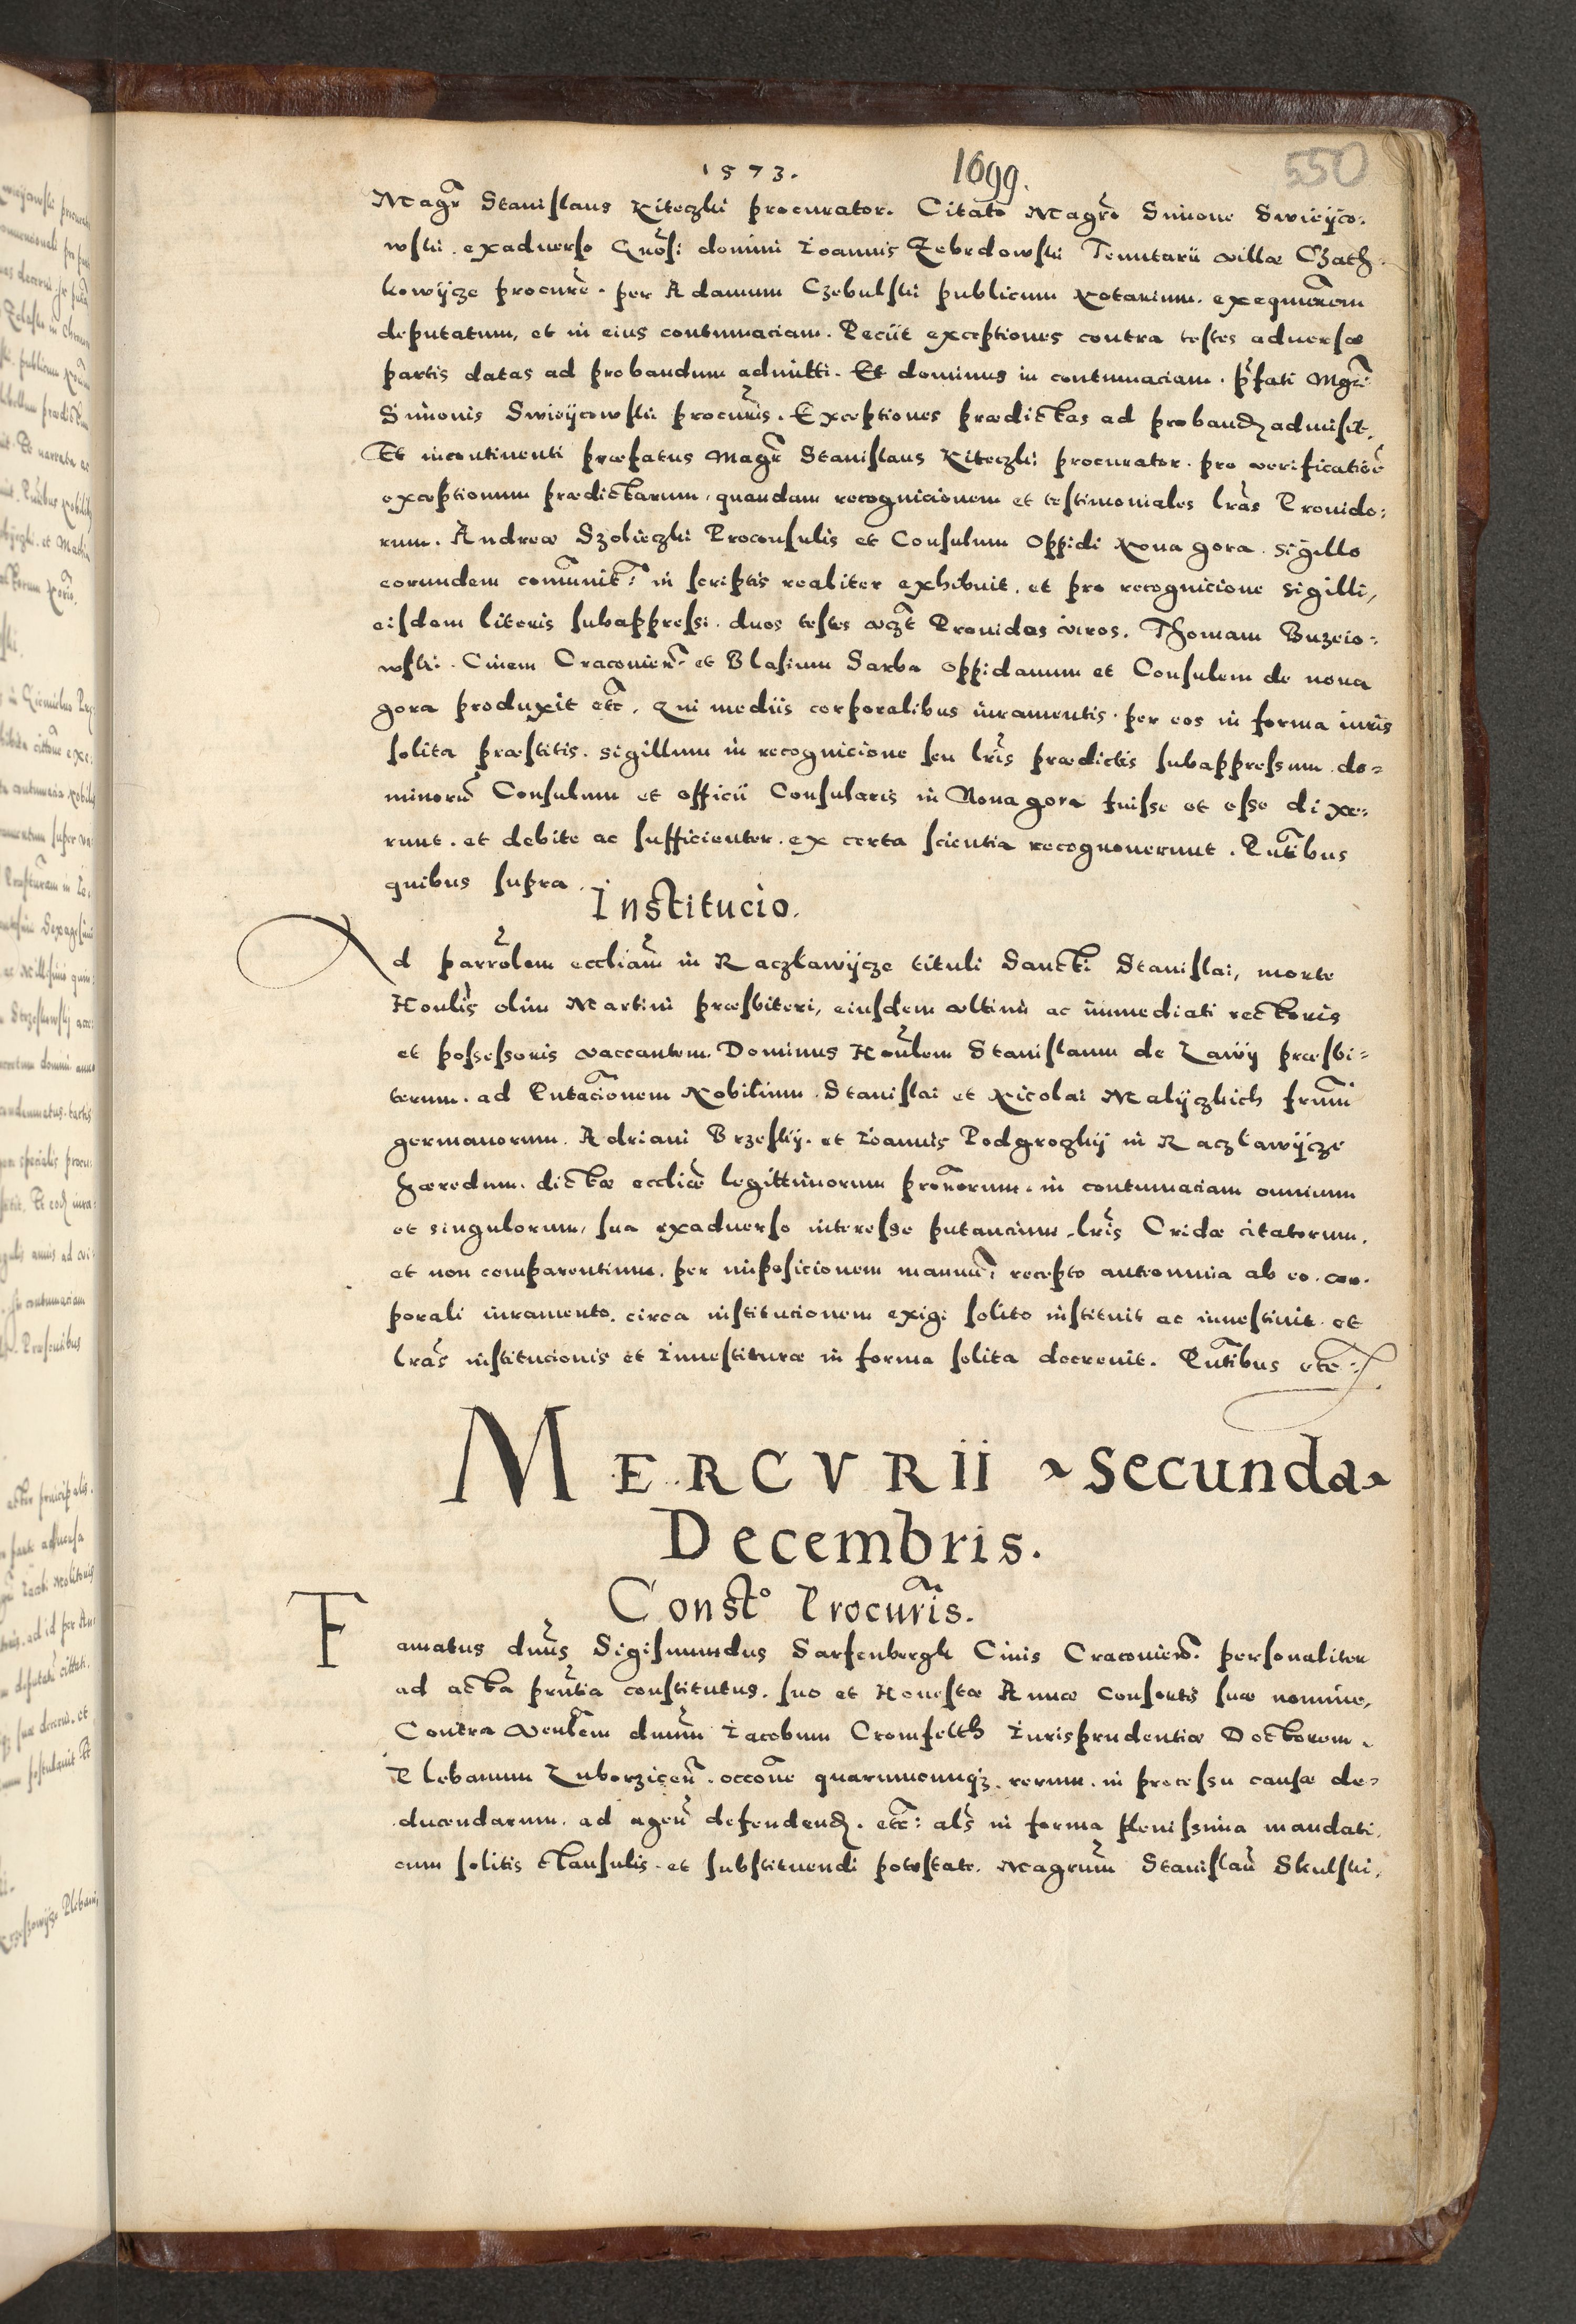 1573. 1099. 550
Magr̃ Stanislaus Kiteczki procurator. Citato Magrõ Simone Swieÿco:
wski. exaduerso Gnõsi domini Ioannis Zebrdowski Tenutarii villæ Czath
kowÿcze procurẽ. per Adamum Czebulski publicum Notarium. exequutorem
deputatum, et in eius contumaciam. Peciit exceptiones contra testes aduersæ
partis datas ad probandum admitti. Et dominus in contumaciam. p̃fati Mgrĩ
Simonis Swieÿcowski procurĩs. Exceptiones prædictas ad proband admisit.
Et incontinenti præfatus Magr̃ Stanislaus Kiteczki procurator. pro verificatiõe
exceptionum prædictarum, quandam recognicionem et testimoniales lrãs Prouido:
rum. Andreæ Szolieczki Proconsulis et Consulum Oppidi Noua gora. sigillo
eorundem comũnit: in scriptis realiter exhibuit. et pro recognicione sigilli,
eisdem literis subappressi. duos testes vczt Prouidos viros. Thomam Buzeio:
wski. Ciuem Cracouien̄. et Blasium Sarba Oppidanum et Consulem de noua
gora produxit etc̃. Qui mediis corporalibus iuramentis. per eos in forma iuris
solita præstitis. sigillum in recognicione seu lrĩs prædictis subappressum do=
minorũ Consulum et officii Consularis in Noua gora fuisse et esse dixe:
runt. et debite ac sufficienter. ex certa scientia recognouerunt. Pñtibus
quibus supra.
Institucio.
Ad parrõlem eccliãm in Raczławÿcze tituli Sancti Stanislai, morte
Honlĩs olim Martini præsbiteri, eiusdem vltimi ac immediati rectoris
et possessoris vaccantem. Dominus Honl̃em Stanislaum de Zawÿ præsbi=
terum. ad Pñtacionem Nobilium. Stanislai et Nicolai Malÿczkich frũm
germanorum. Adriani Brzeskÿ. et Ioannis Podgroczkÿ in Raczławÿcze
hæredum. dictæ ecclĩæ legittimorum prõnorum. in contumaciam omnium
et singulorum, sua exaduerso interesse putancium. lrĩs Cridæ citatorum.
et non comparentium. per imposicionem manuũ, recepto autromnia ab eo. cor.
porali iuramento. circa institucionem exigi solito instituit ac inuestiuit. et
lrãs institucionis et Inuestituræ in forma solita decreuit. Pñtibus etc:
MERCVRII secunda
Decembris.
Constº Procurĩs.
Famatus dnũs Sigismundus Sarfenbergk Ciuis Cracouien̄. personaliter
ad acta prñtia constitutus. suo et Honestæ Annæ Consortis suæ nomine,
Contra Venl̃em dnũm Iacobum Cromfelth Iurisprudentiæ Doctorem.
Plebanum Luborzicen̄. occõne quarumcunqz. rerum. in processu causæ de=
ducendarum. ad agen̄ defendend. etc: als̃ in forma plenissima mandati.
cum solitis clausulis. et substituendi potestate. Magrũm Stanislaũ Skulski.